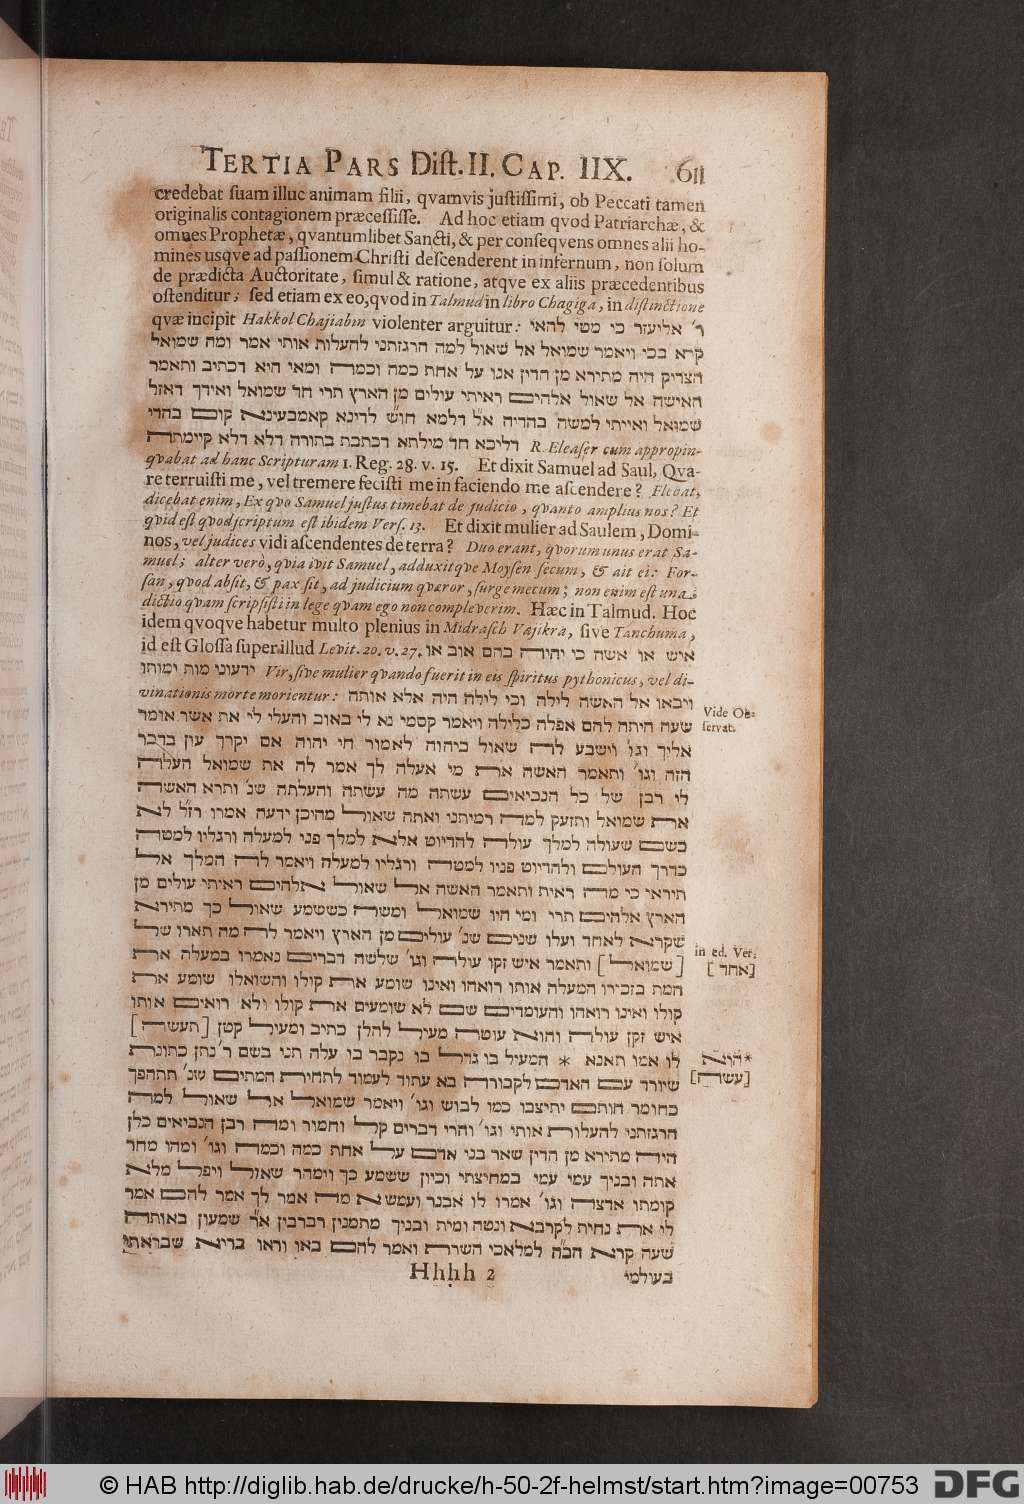 TERTIA PARS Dist. II. CAP. IIX. 611
credebat suam illuc animam filii, qvamvis justissimi, ob Peccati tamen
originalis contagionem præcessisse. Ad hoc etiam qvod Patriarchæ, &
omnes Prophetæ, qvantumlibet Sancti, & per conseqvens omnes alii ho-
mines usqve ad passionem Christi descenderent in infernum, non solum
de prædicta Auctoritate, simul & ratione, atqve ex aliis præcedentibus
ostenditur; sed etiam ex eo, qvod in Talmud in libro Chagiga, in distinctione
qvæ incipit Hakkol Chajiabin violenter arguitur: ר׳ אליעזר כי מטי להאי
קרא בכי ויאמר שמואל אל שאול למה הרגזתני להעלות אותי אמר ומה שמואל
הצדיק היה מתירא מן הדין אנו על אחת כמה וכמה ומאי היא דכתיב ותאמר
האישה אל שאול אלהים ראיתי עולים מן הארץ תרי חד שמואל ואידך דאזל
שמואל ואייתי למשה בהדיה אל דלמא חו״ש לדינא קאמבעינא קום בהדי
דליכא חד מילתא דכתבת בתורה דלא קיימתה R. Eleaser cum appropin-
qvabat ad hanc Scripturam 1. Reg. 28. v. 15. Et dixit Samuel ad Saul, Qva-
re terruisti me, vel tremere fecisti me in faciendo me ascendere? Flebat,
dicebat enim, Ex qvo Samuel justus timebat de judicio, qvanto amplius nos? Et
qvid est qvod scriptum est ibidem Vers. 13. Et dixit mulier ad Saulem, Domi-
nos, vel judices vidi ascendentes de terra? Duo erant, qvorum unus erat Sa-
muel; alter verò, qvia ivit Samuel, adduxitqve Moysen secum, & ait ei: For-
san, qvod absit, & pax sit, ad judicium qværor, surge mecum; non enim est una
dictio qvam scripsisti in lege qvam ego non compleverim. Hæc in Talmud. Hoc
idem qvoqve habetur multo plenius in Midrasch Vajikra, sive Tanchuma,
id est Glossa super illud Levit. 20. v. 27. איש או אשה כי יהיה בהם אוב או
ידעוני מות ימותו Vir, sive mulier qvando fuerit in eis spiritus pythonicus, vel di-
vinationis morte morientur: ויבאו אל האשה לילה וכי לילה היה אלא אותה
שעה היתה להם אפלה כלילה ויאמר קסמי נא לי באוב והעלי לי את אשר אומר
Vide Ob-
servat.
אליך וגו׳ וישבע לה שאול ביהוה לאמור חי יהוה אם יקרך עון בדבר
הזה וגו׳ ותאמר האשה את מי אעלה לך אמר לה את שמואל העלה
לי רבן של כל הנביאים עשתה מה עשתה והעלתה שנ׳ ותרא האשה
את שמואל ותזעק למה רמיתני ואתה שאול מהיכן ידעה אמרו רז״ל לא
כשם שעולה למלך עולה להדיוט אלא למלך פניו למעלה ורגליו למטה
כדרך העולם ולהדיוט פניו למטה ורגליו למעלה ויאמר לה המלך אל
תיראי כי מה ראית ותאמר האשה אל שאול אלהים ראיתי עולים מן
הארץ אלהים תרי ומי היו שמואל ומשה כששמע שאול כך מתירא
שקרא לאחד ועלו שנים שנ׳ עולים מן הארץ ויאמר לה מה תארו של
[שמואל] ותאמר איש זקן עולה וגו׳ שלשה דברים נאמרו במעלה את
in ed. Ver.
[אחד]
המת בזכורו המעלה אותו רואהו ואינו שומע את קולו והשואלו שומע את
קולו ואינו רואהו והעומדים שם לא שומעים את קולו ולא רואים אותו
איש זקן עולה והוא עוטה מעיל להלן כתיב ומעיל קטן [תעשה]
לו אמו תאנא * המעיל בו גדל בו נקבר בו עלה תני בשם ר׳ נתן כתונת
*הוא
[עשה]
שיורד עם האדם לקבורה בא עתוד לעמוד לתחית המתים שנ׳ תתהפך
כחומר חותם יתיצבו כמו לבוש וגו׳ ויאמר שמואל אל שאול למה
הרגזתני להעלות אותי וגו׳ והרי דברים קל וחמור ומה רבן הנביאים כלן
היה מתירא מן הדין שאר בני אדם על אחת כמה וכמה וגו׳ ומהו מחר
אתה ובניך עמי עמי במחיצתי וכיון ששמע כך וימהר שאול ויפל מלא
קומתו ארצה וגו׳ אמרו לו אבנר ועמשא מה אמר לך אמר להם אמר
לי את נחית לקרבא ונטה ומית ובניך מתמנין רברבין א״ר שמעון באותה
שעה קרא הב״ה למלאכי השרת ואמר להם באו וראו בריא שבראתי
Hhhh 2 בעולמי
© HAB http://diglib.hab.de/drucke/h-50-2f-helmst/start.htm?image=00753 DFG